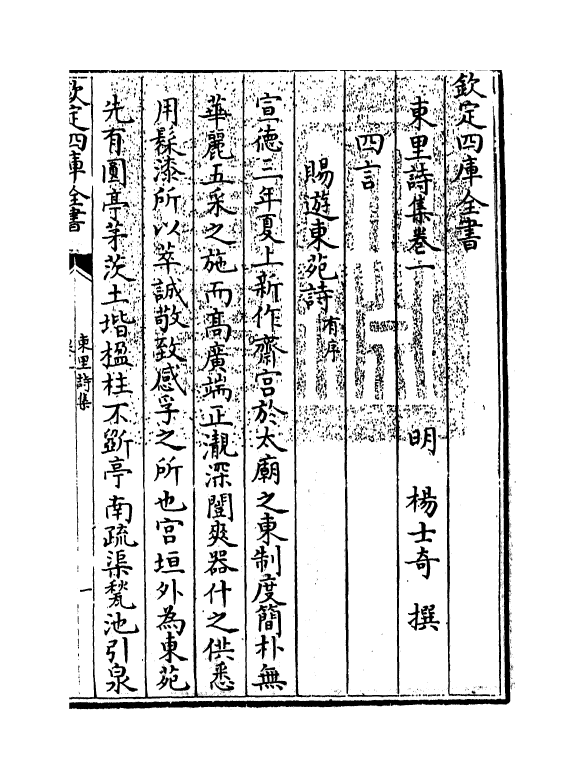 欽定四庫全書
東里詩集卷一
明 楊士奇 撰
四言
賜遊東苑詩有序
宣德三年夏上新作齋宮於太廟之東制度簡朴無
華麗五采之施而髙廣端正瀞深闓爽器什之供悉
用髹漆所以萃誠敬致感孚之所也宫垣外為東苑
先有圓亭茅茨土堦楹柱不斵亭南疏渠甃池引泉
欽定四庫全書
東里詩集
一